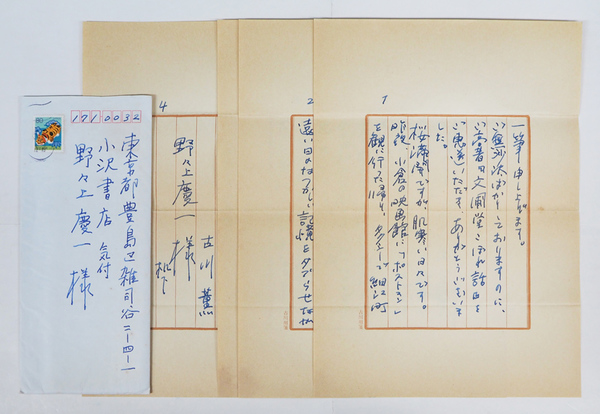 1
一筆申し上げます。
ご無沙汰致しておりますのに、
ご高著「文圃堂こぼれ話」を
ご恵送いただき、ありがとうございま
した。
桜満開ですが、肌寒い日々です。
昨夜、小倉の映画館に
を観に行った帰り、タクシーで 細江町
2
遠い日のなつかしい記憶をタグらせなが
4
古川 薫
野々上慶一様
机下
1710032
東京都豊島区雑司谷二ー四ー一
小沢書店 気付
野々上慶一様